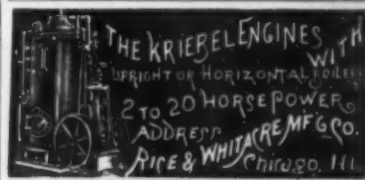 THE KRIEBEL ENGINES
WITH
UPRIGHT OR HORIZONTAL BOILER
2 TO 20 HORSE POWER
ADDRESS
RICE & WHITACRE M'F'G CO.
Chicago, Ill.